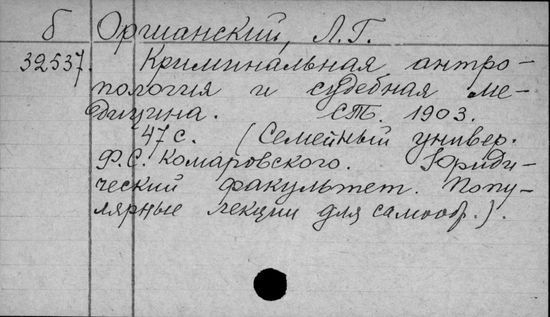 б Оршанский, Л.Г.
32537. Криминальная антро-
пология и судебная ме-
дицина. СПб. 1903.
47 с. (Семейный универ.
Ф.С. Комаровского. Юриди-
ческий факультет. Попу-
лярные лекции для самообр.).